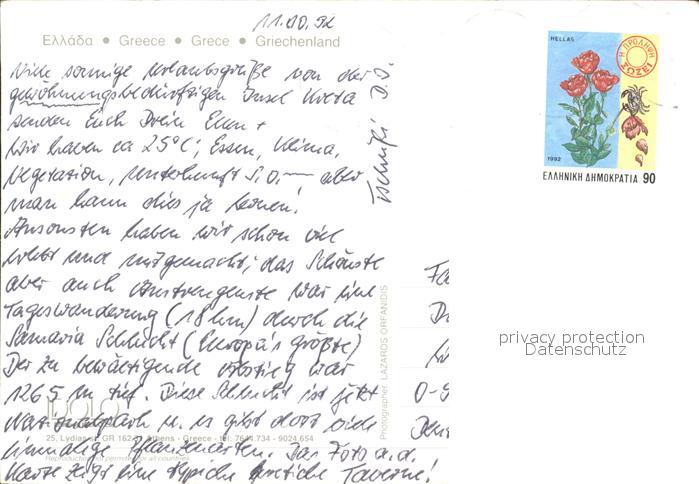 11.10.92
Ελλάδα • Greece • Grece • Griechenland
Viele sonnige Urlaubsgrüße von der
gewöhnungsbedürftigen Insel Kreta
senden Euch Drein Ellen +
Wir haben ca 25°C; Essen, Klima,
Vegetation, Unterkunft s.o. — aber
man kann dies ja lernen!
Ansonsten haben wir schon viel
erlebt und mitgemacht; das Schönste
aber auch Anstrengenste war eine
Tageswanderung (18 km) durch die
Samaria Schlucht (Europa's größte)
Der zu bewältigende Abstieg war
1265 m tief. Diese Schlucht ist jetzt
Nationalpark u. es gibt dort viele
einmalige Pflanzenarten. Das Foto a.d.
Karte zeigt eine typische kretische Taverne!
Tschüßi
25, Lydias st. GR 162 Athens - Greece - tel: 7644.734 - 9024.654
Reproduction not permitted for all countries
Photographer: LAZAROS ORFANIDIS
HELLAS
Η ΠΡΟΛΗΨΗ
ΣΩΖΕΙ
1992
ΕΛΛΗΝΙΚΗ ΔΗΜΟΚΡΑΤΙΑ 90
Fa
O-9
privacy protection
Datenschutz